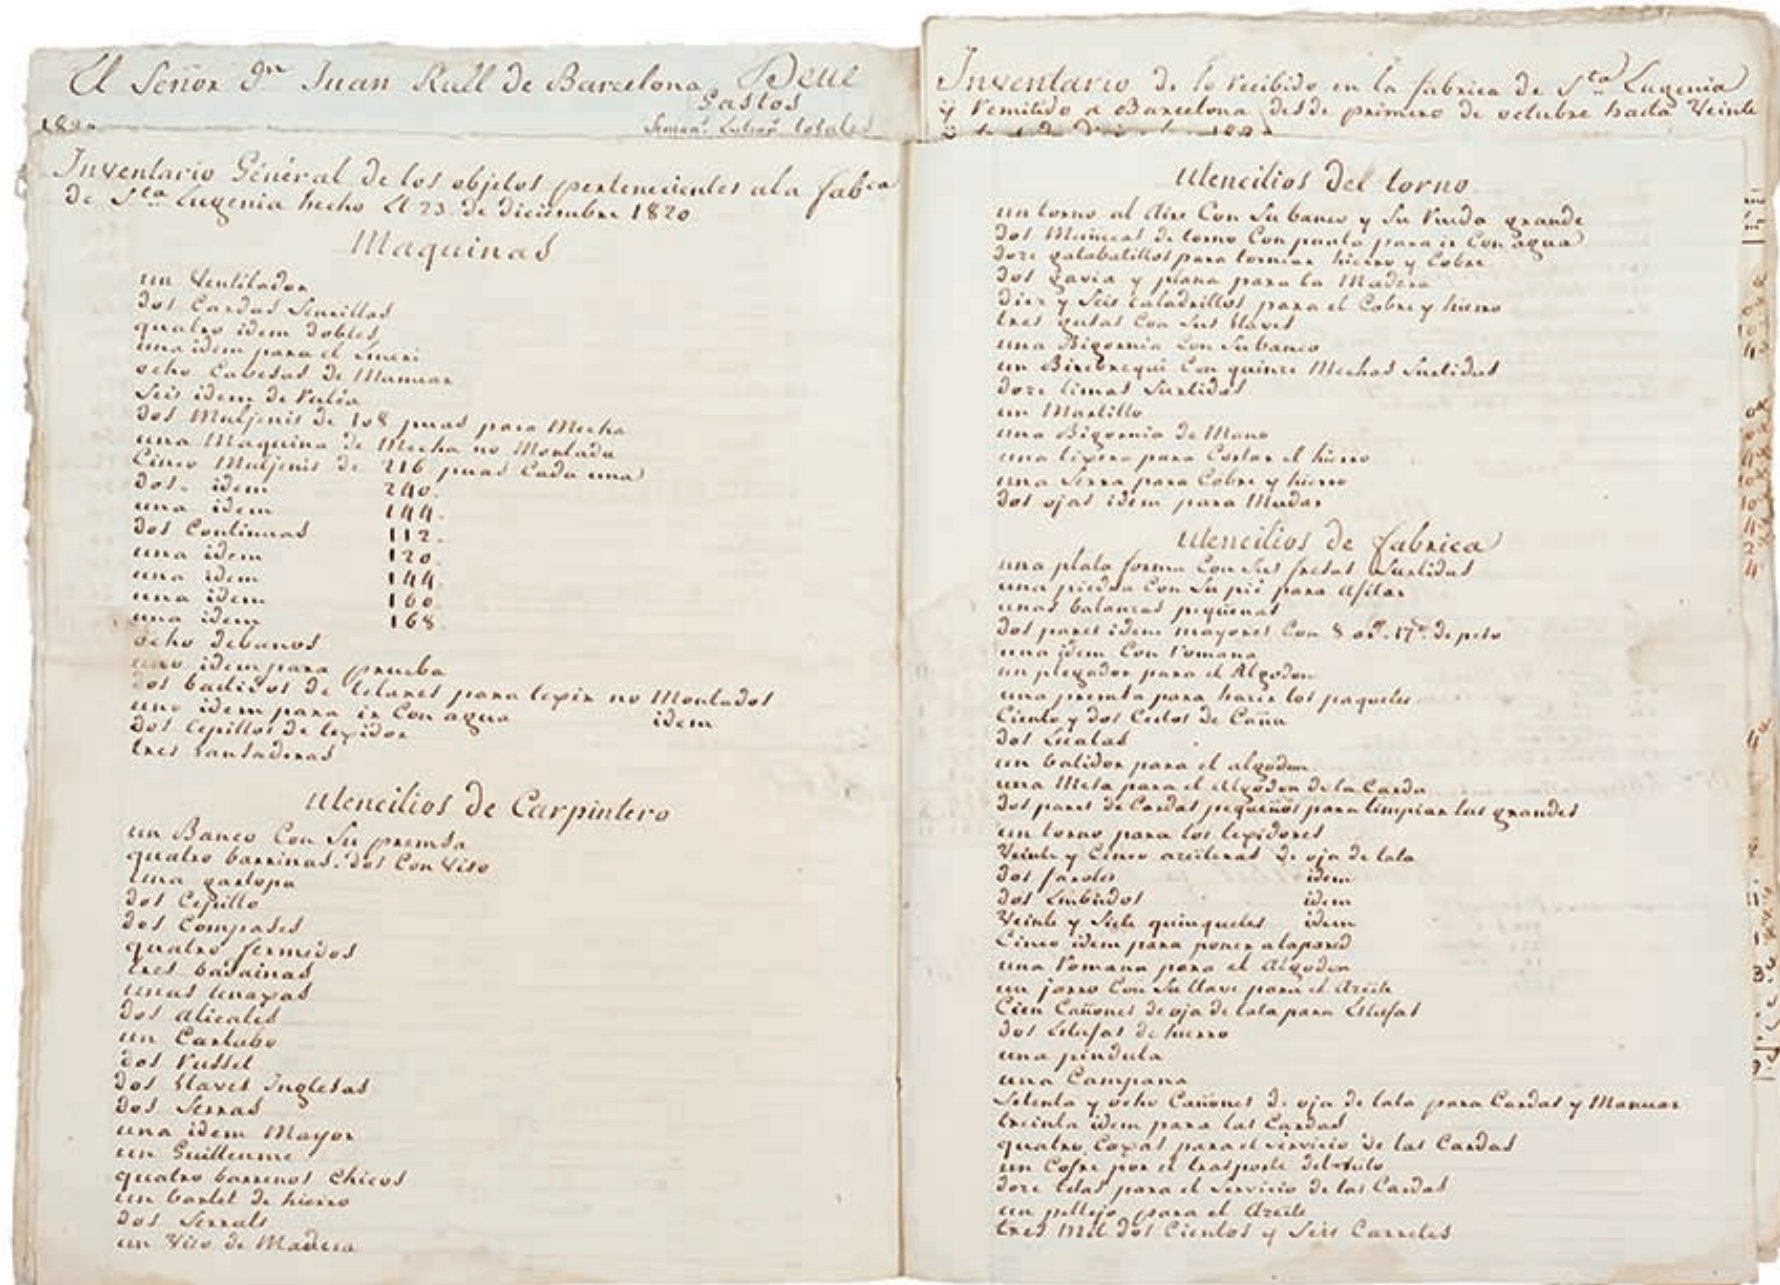 El Señor Dn Juan Rull de Barcelona Deue
Gastos
totales
Inventario Géneral de los objetos pertenecientes ala fabca
de Sta Eugenia hecho El 23 de diciembre 1820
Maquinas
un Ventilador
dos Cardas Sencillas
quatro idem dobles
una idem para el
ocho Cabesas de Manuar
Seis idem de
dos Muljenis de 108 puas para Mecha
una Maquina de Mecha no Montada
Cinco Muljenis de 216 puas Cada una
dos idem 240.
una idem 144.
dos Continuas 112.
una idem 120.
una idem 144.
una idem 160.
una idem 168.
ocho debanos
uno idem para prueba
dos de telares para texir no Montados
uno idem para ir Con agua idem
dos Cepillos de texidor
tres Lansaderas
Utencilios de Carpintero
un Banco Con Su premsa
quatro barrinas dos Con Viso
una garlopa
dos Cepillo
dos Compases
quatro fermidos
tres
unas tenaxas
dos alicates
un Cartabo
dos Russel
dos Llaves Inglesas
dos Serras
una idem Mayor
un Guilleume
quatro barrenos chicos
un barlet de hierro
dos Serrals
un Viso de Madera
Inventario de lo recibido en la fabrica de Sta Eugenia
y remitido a Barcelona desde primero de octubre hasta Veinte
Utencilios del torno
un torno al Aire Con Su banco y Su rueda grande
dos Muñecas de torno Con punto para ir Con agua
doze para tornear hierro y Cobre
dos gavia y plana para la Madera
diez y Seis para el Cobre y hierro
tres Con Sus Llaves
una Bigornia Con Su banco
un Birebrequi Con quinze Mechas Surtidas
doze limas Surtidas
un Martillo
una Bigornia de Mano
una tixera para Cortar el hierro
una Serra para Cobre y hierro
dos ojas idem para Mudar
Utencilios de fabrica
una plata forma Con Sus fresas Surtidas
una piedra Con Su pié para Afilar
unas balanzas pequeñas
dos pares idem mayores Con 8 de peso
una idem Con romana
un plegador para el Algodon
una premsa para hazer los paquetes
Ciento y dos Cestos de Caña
dos Escalas
un batidor para el algodon
una Mesa para el Algodon de la Carda
dos pares de Cardas pequeños para limpiar las grandes
un torno para los texidores
Veinte y Cinco azeiteras de oja de lata
dos faroles idem
dos Embudos idem
Veinte y Siete quinquetes idem
Cinco idem para poner ala pared
una romana para el Algodon
un jarro Con Su llave para el Azeite
Cien Cañones de oja de lata para Estufas
dos Estufas de hierro
una péndula
una Campana
Setenta y ocho Cañones de oja de lata para Cardas y Manuar
treinta idem para las Cardas
quatro Coxas para el servicio de las Cardas
un Cofre por el trasporte del
doze telas para el Servicio de las Cardas
un pellejo para el Azeite
tres Mil dos Cientos y Seis Carretes